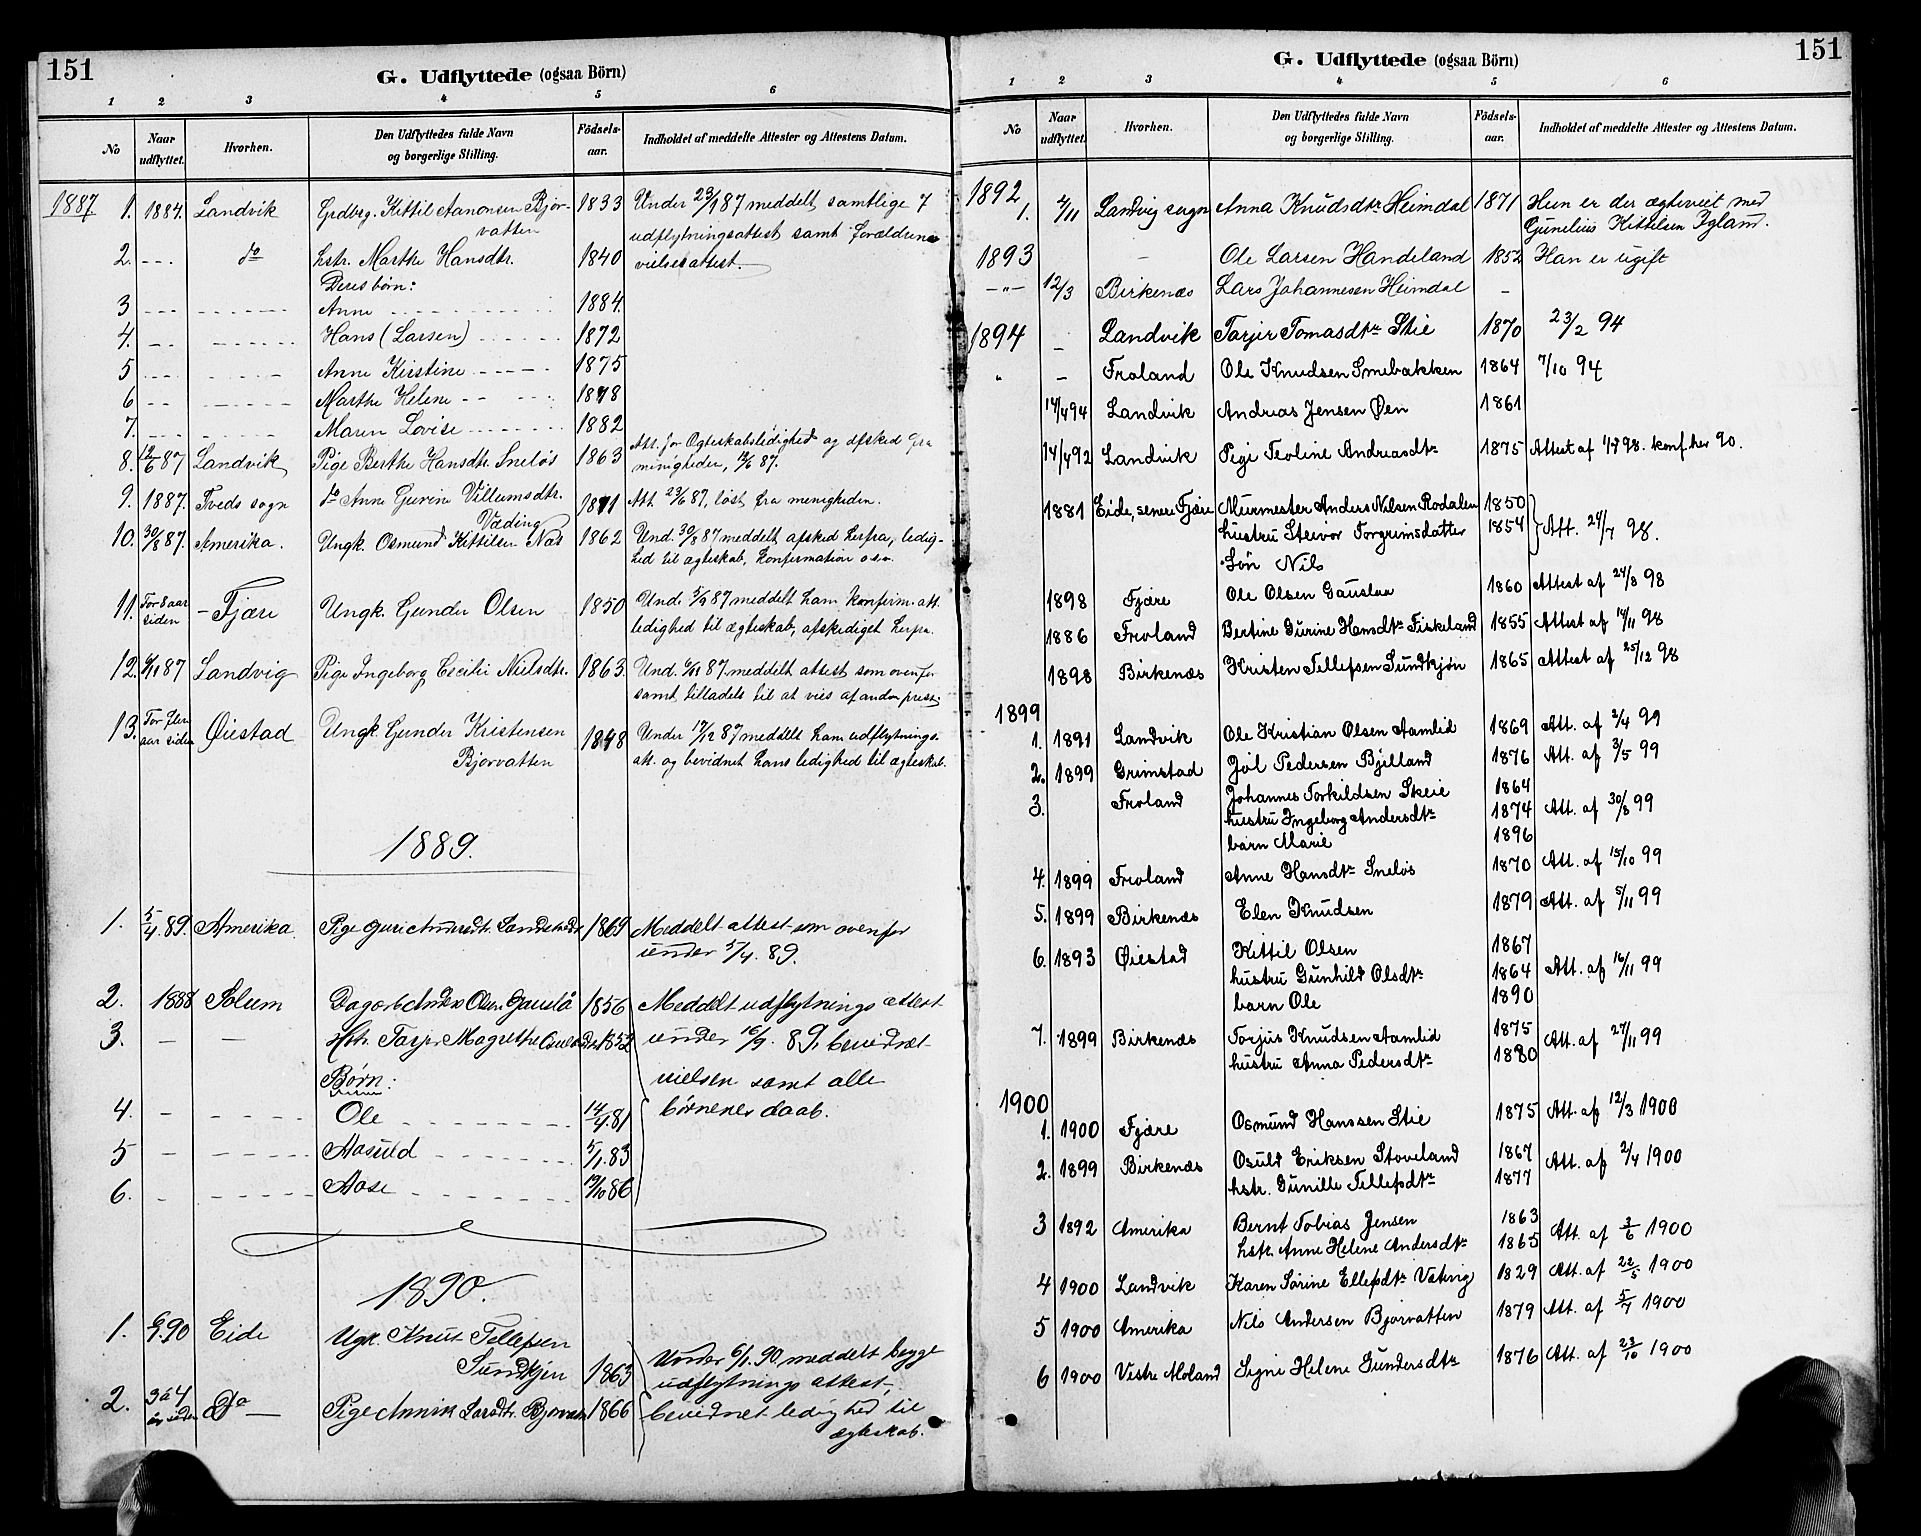 151
G. Udflyttede (ogsaa Börn)
1 2 3 4 5 6
No | Naar udflyttet. | Hvorhen. | Den Udflyttedes fulde Navn og borgerlige Stilling. | Födsels-aar. | Indholdet af meddelte Attester og Attestens Datum.
1887 1. 1884. Landvik Grdbrg. Kittil Aanonsen Bjor- 1833 Under 23/1 87 meddelt samtlige 7
vatten udflytningsattest samt forældrene
2. --- do hstr. Marthe Hansdtr. 1840 vielsesattest.
Deres børn:
3 --- Anne 1884.
4. --- Hans (Larsen) 1872
5 --- Anne Kirstine 1875
6 --- Marthe Helene 1878
7. --- Maren Lovise 1882
8. 12/6 87 Landvik Pige Berthe Hansdtr. Sneløs 1863 Att. for Ægteskabsledighed og afsked fra
menigheden, 12/6 87.
9. 1887. Tveds sogn do Anne Gurine Villumsdtr. 1871 Att. 23/6 87, løst fra menigheden.
Væding
10. 30/8 87. Amerika. Ungk. Osmund Kittilsen Næs 1862 Und. 30/8 87 meddelt afsked herfra, ledig-
hed til ægteskab, konfirmation osv.
11. For 8 aar siden - Fjære Ungk. Gunder Olsen 1850 Und. 5/9 87 meddelt ham konfirm. att.
ledighed til ægteskab, afskediget herfra.
12. 6/11 87 Landvig Pige Ingeborg Cecilie Nielsdtr. 1863. Und. 6/11 87 meddelt attest som ovenfor
samt tilladelse til at vies af anden prest
13. For flere aar siden Øiestad Ungk. Gunder Kristensen 1848 Under 17/12 87 meddelt ham udflytnings-
Bjorvatten att. og bevidnet hans ledighed til ægteskab.
1889.
1. 5/4. 89. Amerika. Pige Guri Landstedt 1869 Meddelt attest som ovenfor
under 5/4. 89.
2. 1888 Solum Dagarb. Anders Olsen Gauslå 1856 Meddelt udflytnings attest
3. - - Hstr. Tarjer Magrethe 1852 under 16/9. 89, bevidnet
Børn: vielsen samt alle
4. - Ole 14/4. 81 børnenes daab.
5 - Aasuld 5/1. 83
6. - Aase 19/10 86
1890.
1. 6/1. 90 Eide Ugk. Knut Tellefsen
Sundkjen 1863 Under 6/1. 90 meddelt begge
udflytnings attest,
2. 3 a 4 år siden Do - Pige Annik Larsdtr. Bjorvatn 1866 bevidnet ledighed til
ægteskab.
151
G. Udflyttede (ogsaa Börn)
1 2 3 4 5 6
No | Naar udflyttet. | Hvorhen. | Den Udflyttedes fulde Navn og borgerlige Stilling. | Födsels-aar. | Indholdet af meddelte Attester og Attestens Datum.
1892 1. 4/11 Landvig sogn Anna Knudsdtr Heimdal 1871 Hun er der ægteviet med
Gunelius Kittilsen Igland.
1893 - Ole Larsen Handeland 1852 Han er ugift
-"- 12/3 Birkenæs Lars Johannesen Heimdal -
1894 - Landvik Tarjer Tomasdtr Stie 1870 23/2 94
" - Froland Ole Knudsen Smebakken 1864 7/10 94
14/4 94 Landvik Andreas Jensen Øen 1861
14/4 92 Landvik Pige Teoline Andreasdtr 1875 Attest af 98. konf. her 90.
1881 Eide, senere Fjære Murmester Anders Nilsen Rodalen 1850
hustru Steivor Torgrimsdatter 1854 Att. 24/7 98.
Søn Nils
1898 Fjære Ole Olsen Gauslaa 1860 Attest af 24/8 98
1886 Froland Bertine Gurine Hansdtr Fiskeland 1855 Attest af 14/11 98
1898 Birkenæs Kristen Tellefsen Sundkjøn 1865 Attest af 25/12 98
1899
1. 1891 Landvik Ole Kristian Olsen Aamlid 1869 Att. af 2/4 99
2. 1899 Grimstad Joil Pedersen Bjelland 1876 Att. af 3/5 99
3. Froland Johannes Torkildsen Skeie 1864
hustru Ingeborg Andersdtr 1874 Att. af 30/8 99
barn Marie 1896
4. 1899 Froland Anne Hansdtr Sneløs 1870 Att. af 15/10 99
5. 1899 Birkenæs Elen Knudsen 1879 Att. af 5/11 99
6. 1893 Øiestad Kittil Olsen 1867
hustru Gunhild Olsdtr 1864 Att. af 16/11 99
barn Ole 1890
7. 1899 Birkenæs Torjus Knudsen Aamlid 1875
hustru Anna Pedersdtr 1880 Att. af 27/11 99
1900
1. 1900 Fjære Osmund Hanssen Stie 1875 Att. af 12/3 1900
2. 1899 Birkenæs Osuld Eriksen Stoveland 1867
hstr. Gunille Tellefsdtr 1877 Att. af 2/4 1900
3 1892 Amerika Bernt Tobias Jensen 1863
hstr. Anne Helene Andersdtr 1865 Att. af 3/6 1900
4 1900 Landvik Karen Sørine Ellefsdtr Væting 1829 Att. af 22/5 1900
5 1900 Amerika Nils Andersen Bjorvatten 1879 Att. af 5/7 1900
6 1900 Vestre Moland Signe Helene Gundersdtr 1876 Att. af 23/10 1900